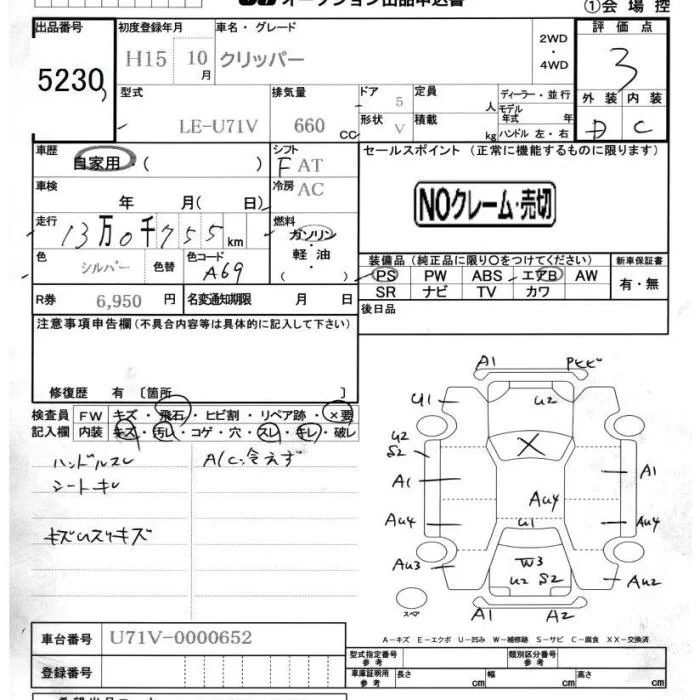 オークション出品申込書
①会場控
出品番号 初度登録年月 車名・グレード 評価点
5230 H15 10月 クリッパー 2WD・4WD 3
型式 排気量 ドア 定員 ディーラー・並行 外装 内装
LE-U71V 660cc 5 人 モデル年式 年 D C
形状 V 積載 kg ハンドル 左・右
車歴 シフト セールスポイント (正常に機能するものに限ります)
自家用・( ) F AT
車検 冷房 AC
年 月( 日) NOクレーム・売切
走行 燃料
13万0千755km ガソリン・軽油・( )
色 シルバー 色替 色コード A69
装備品 (純正品に限り○をつけてください) 新車保証書
PS PW ABS エアB AW 有・無
SR ナビ TV カワ
R券 6,950円 名変通知期限 月 日
後日品
注意事項申告欄 (不具合内容等は具体的に記入して下さい)
修復歴 有 〔箇所 〕
検査員記入欄 FW キズ・飛石・ヒビ割・リペア跡・×要
内装 キズ・汚レ・コゲ・穴・スレ・キレ・破レ
ハンドルスレ A/C冷えず
シートキレ
A1
U1 U2
U2
S2
X
A1 A1
AU4 AU4
AU4
U1
AU3 W3 AU2
U2 S2
スペア
A1 A2
A−キズ E−エクボ U−凹み W−補修跡 S−サビ C−腐食 XX−交換済
車台番号 U71V-0000652
登録番号
型式指定番号 参考 類別区分番号 参考
車庫証明用 参考 長さ cm 幅 cm 高さ cm